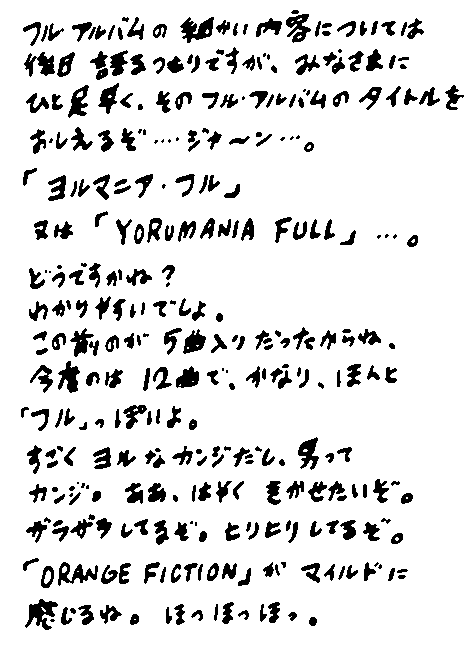 フルアルバムの細かい内容については
後日語るつもりですが、みなさまに
ひと足早く、そのフル・アルバムのタイトルを
おしえるぞ‥‥ジャ〜ン…。
「ヨルマニア・フル」
又は「YORUMANIA FULL」…。
どうですかね？
わかりやすいでしょ。
この前のが5曲入りだったからね、
今度のは12曲で、かなり、ほんと
「フル」っぽいよ。
すごくヨルなカンジだし、男って
カンジ。ああ、はやくきかせたいぞ。
ザラザラしてるぞ。ヒリヒリしてるぞ。
「ORANGE FICTION」がマイルドに
感じるね。ほっほっほっ。